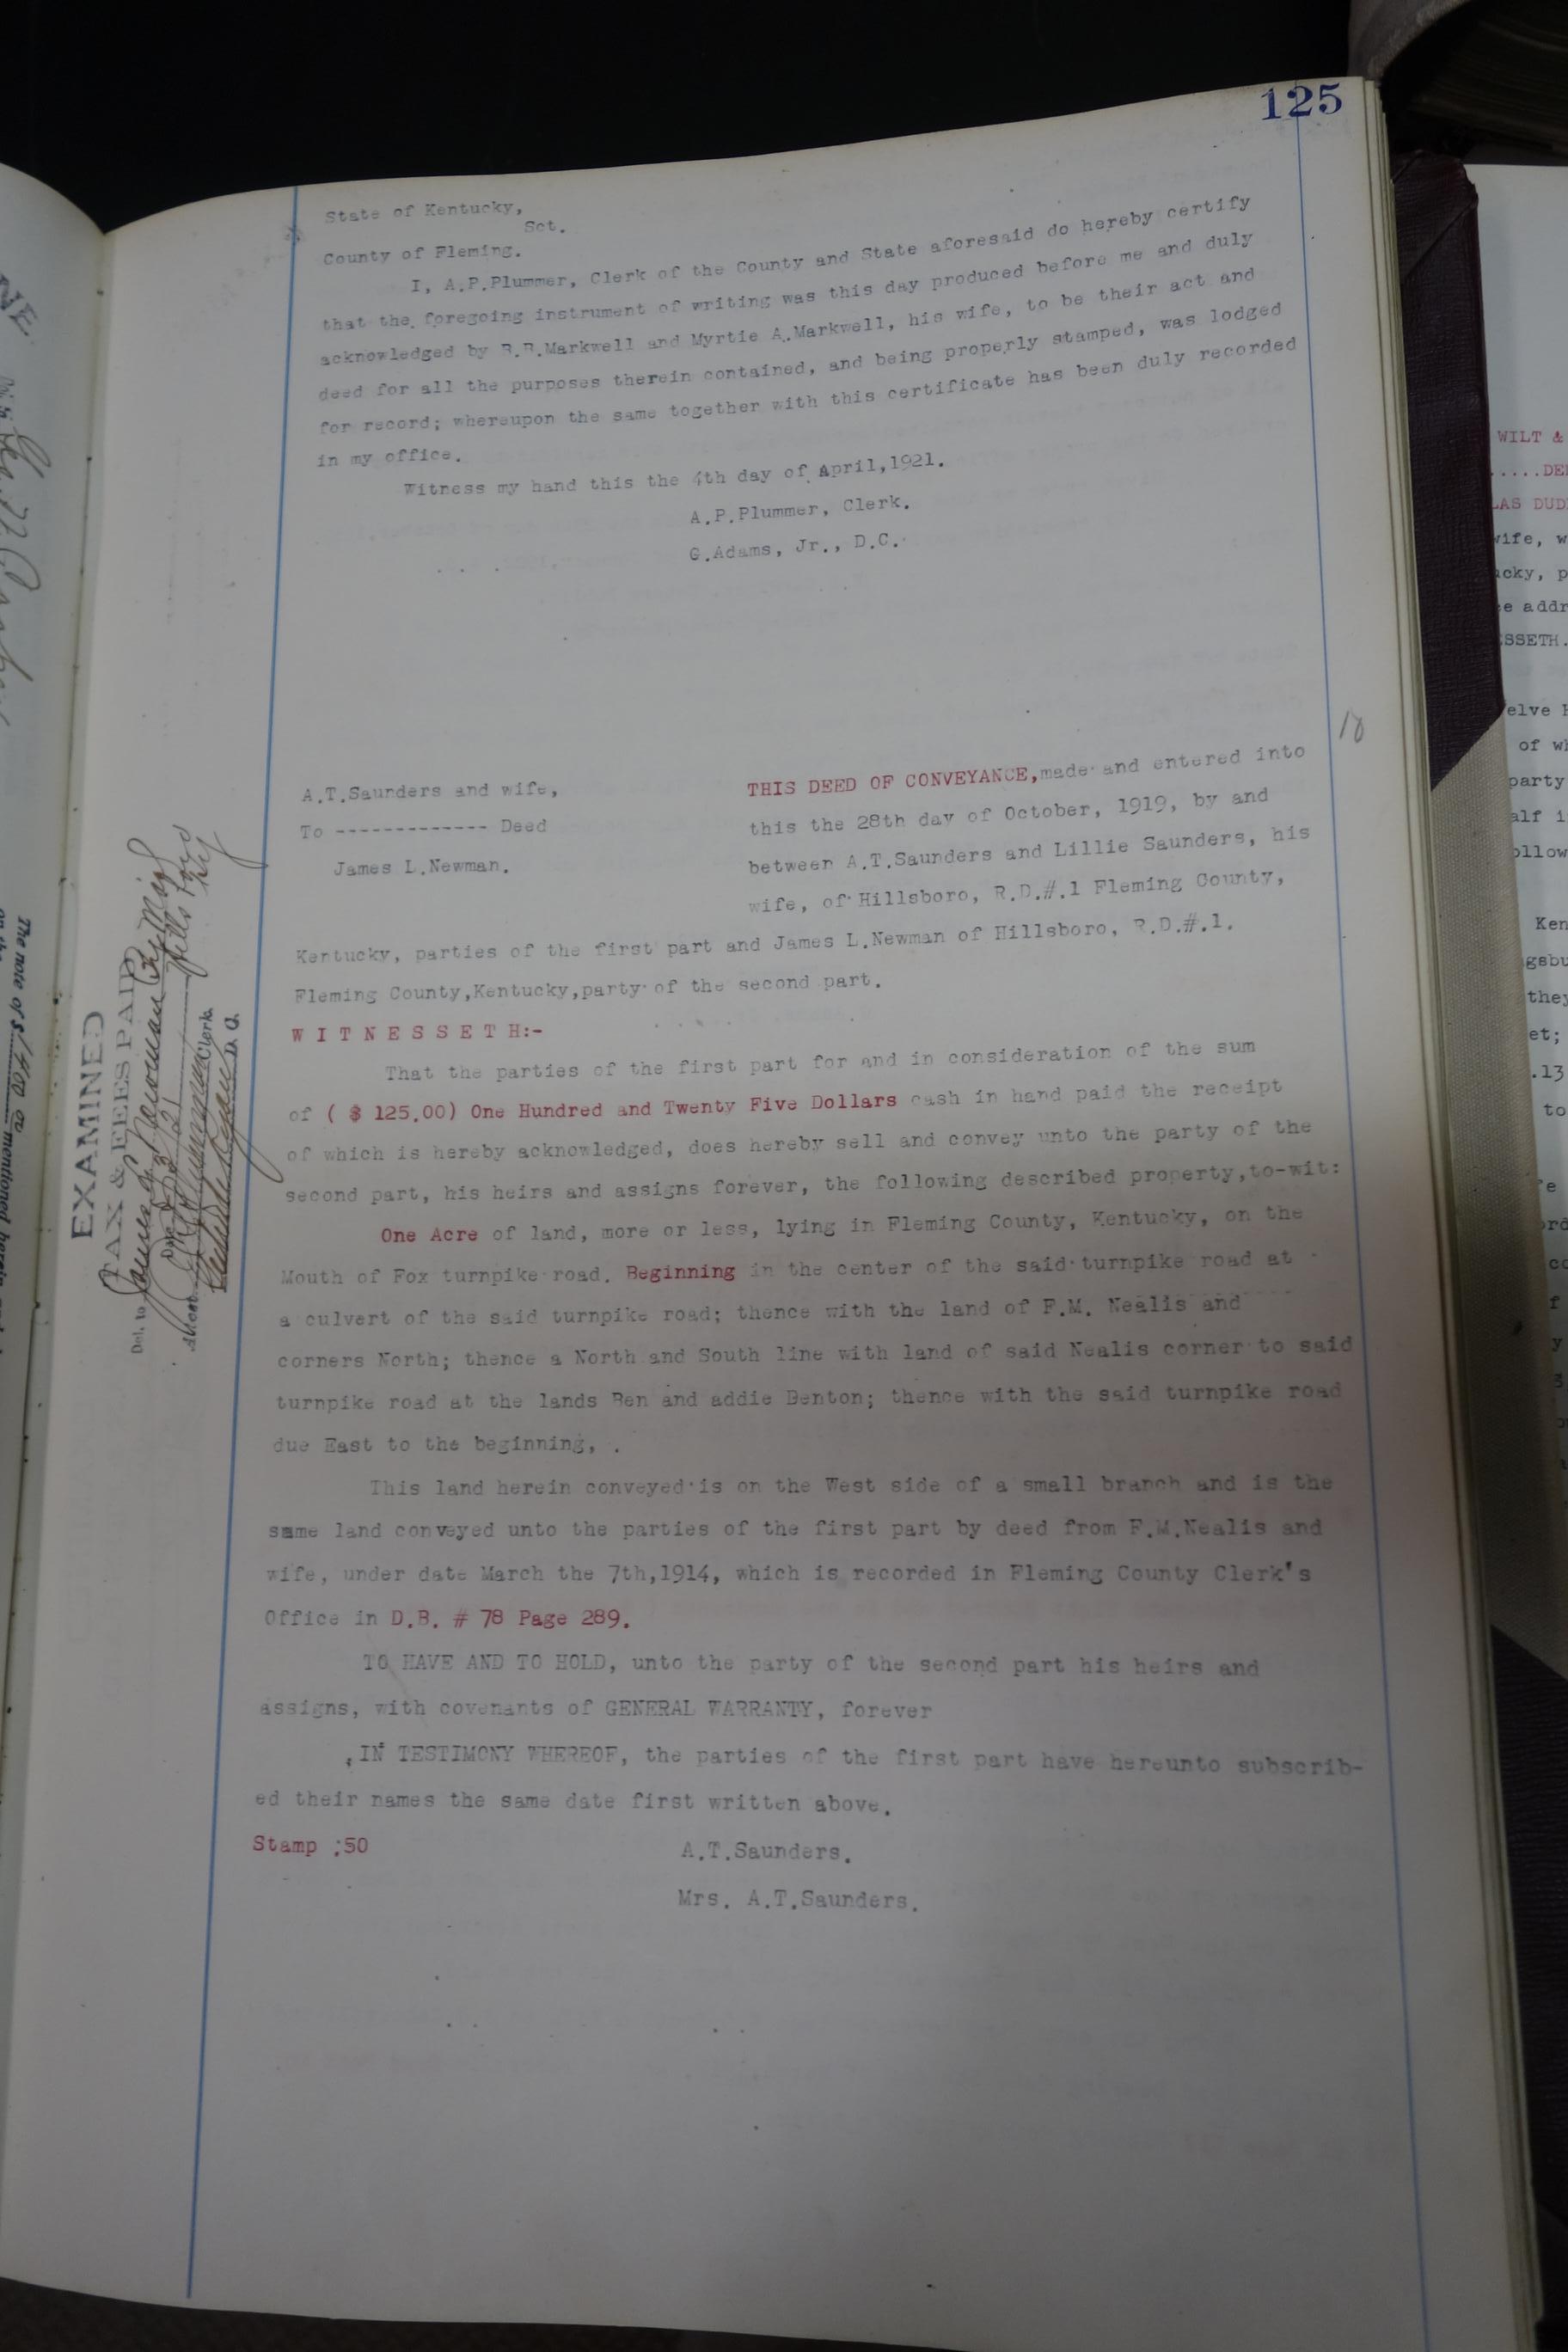 125
State of Kentucky,
Sct.
County of Fleming.
I, A.P.Plummer, Clerk of the County and State aforesaid do hereby certify
that the foregoing instrument of writing was this day produced before me and duly
acknowledged by B.B.Markwell and Myrtie A.Markwell, his wife, to be their act and
deed for all the purposes therein contained, and being properly stamped, was lodged
for record; whereupon the same together with this certificate has been duly recorded
in my office.
Witness my hand this the 4th day of April,1921.
A.P.Plummer, Clerk.
G.Adams, Jr., D.C.
18
A.T.Saunders and wife,
To ------------- Deed
James L.Newman.
THIS DEED OF CONVEYANCE,made and entered into
this the 28th day of October, 1919, by and
between A.T.Saunders and Lillie Saunders, his
wife, of Hillsboro, R.D.#.1 Fleming County,
Kentucky, parties of the first part and James L.Newman of Hillsboro, R.D.#.1.
Fleming County,Kentucky,party of the second part.
W I T N E S S E T H:-
That the parties of the first part for and in consideration of the sum
of ( $ 125.00) One Hundred and Twenty Five Dollars cash in hand paid the receipt
of which is hereby acknowledged, does hereby sell and convey unto the party of the
second part, his heirs and assigns forever, the following described property,to-wit:
One Acre of land, more or less, lying in Fleming County, Kentucky, on the
Mouth of Fox turnpike road. Beginning in the center of the said turnpike road at
a culvert of the said turnpike road; thence with the land of F.M. Nealis and
corners North; thence a North and South line with land of said Nealis corner to said
turnpike road at the lands Ben and addie Denton; thence with the said turnpike road
due East to the beginning, .
This land herein conveyed is on the West side of a small branch and is the
same land conveyed unto the parties of the first part by deed from F.M.Nealis and
wife, under date March the 7th,1914, which is recorded in Fleming County Clerk's
Office in D.B. # 78 Page 289.
TO HAVE AND TO HOLD, unto the party of the second part his heirs and
assigns, with covenants of GENERAL WARRANTY, forever
IN TESTIMONY WHEREOF, the parties of the first part have hereunto subscrib-
ed their names the same date first written above.
Stamp :50
A.T.Saunders.
Mrs. A.T.Saunders.
EXAMINED
TAX & FEES PAID
Del. to James L Newman
Clerk
D. C.
The note of $1400 00 mentioned herein
WILT &
.....DE
LAS DUD
wife, w
ucky, p
ce addr
ESSETH.
elve
of wh
party
alf i
ollow
Ken
gsbu
they
et;
.13
to